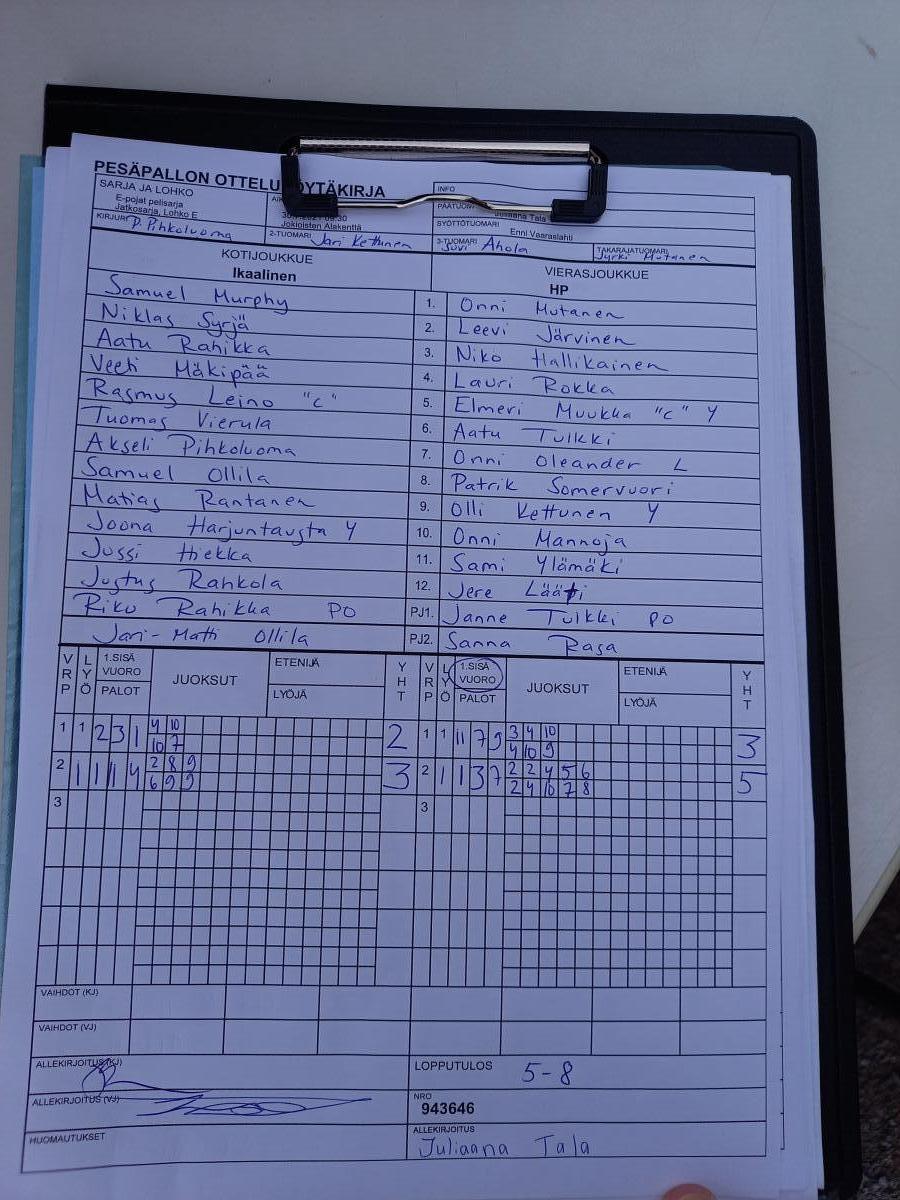 PESÄPALLON OTTELUPÖYTÄKIRJA
SARJA JA LOHKO
E-pojat pelisarja
Jatkosarja, Lohko E
INFO
Jokioisten Alakenttä
Juliaana Tala
SYÖTTÖTUOMARI
Enni Vaaraslahti
KIRJURI P. Pihkoluoma
2-TUOMARI Jari Kettunen
3-TUOMARI Suvi Ahola
TAKARAJATUOMARI Jyrki Mutanen
KOTIJOUKKUE
Ikaalinen
VIERASJOUKKUE
HP
Samuel Murphy 1. Onni Mutanen
Niklas Syrjä 2. Leevi Järvinen
Aatu Rahikka 3. Niko Hallikainen
Veeti Mäkipää 4. Lauri Rokka
Rasmus Leino "c" 5. Elmeri Muukka "c" Y
Tuomas Vierula 6. Aatu Tulkki
Akseli Pihkoluoma 7. Onni Oleander L
Samuel Ollila 8. Patrik Somervuori
Matias Rantanen 9. Olli Kettunen Y
Joona Harjuntausta Y 10. Onni Mannoja
Jussi Hiekka 11. Sami Ylämäki
Justus Rahkola 12. Jere Lääti
Riku Rahikka PO PJ1. Janne Tulkki PO
Jari-Matti Ollila PJ2. Sanna Rasa
VRP LYÖ 1.SISÄ VUORO PALOT JUOKSUT ETENIJÄ LYÖJÄ YHT VRP LYÖ 1.SISÄ VUORO PALOT JUOKSUT ETENIJÄ LYÖJÄ YHT
1 1 2 3 1 4 10 2 1 1 11 7 9 3 4 10 3
10 7 4 10 9
2 1 1 1 4 2 8 9 3 2 1 1 3 7 2 2 4 5 6 5
6 9 9 2 4 10 7 8
3 3
VAIHDOT (KJ)
VAIHDOT (VJ)
ALLEKIRJOITUS (KJ)
LOPPUTULOS 5-8
ALLEKIRJOITUS (VJ)
NRO
943646
HUOMAUTUKSET
ALLEKIRJOITUS
Juliaana Tala